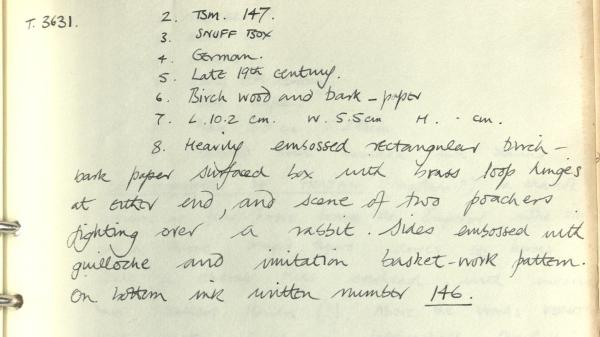 T. 3631.
2. TSM. 147.
3. SNUFF BOX
4. German.
5. Late 19th century.
6. Birch wood and bark-paper
7. L. 10.2 cm. W. 5.5cm H. . cm.
8. Heavily embossed rectangular birch-
bark paper surfaced box with brass loop hinges
at either end, and scene of two poachers
fighting over a rabbit. Sides embossed with
guilloche and imitation basket-work pattern.
On bottom ink written number 146.